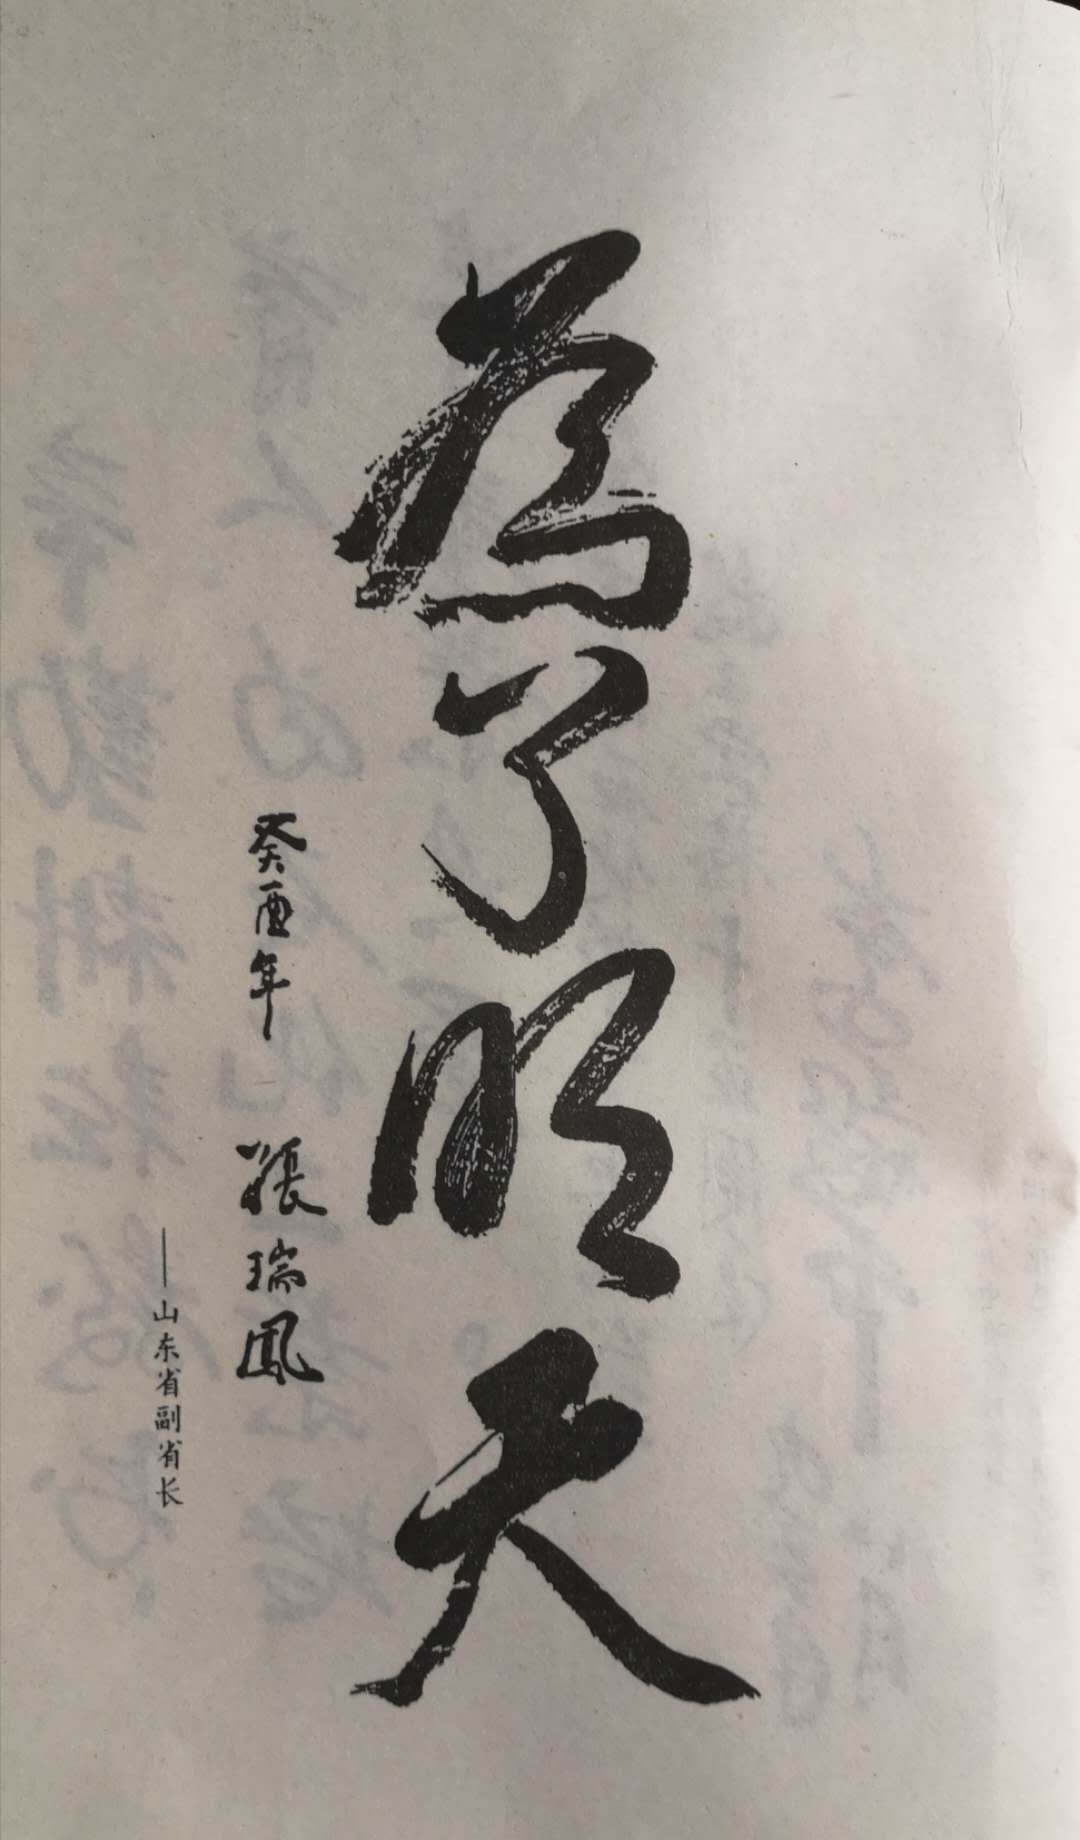 為了明天
癸酉年 張瑞鳳
——山东省副省长